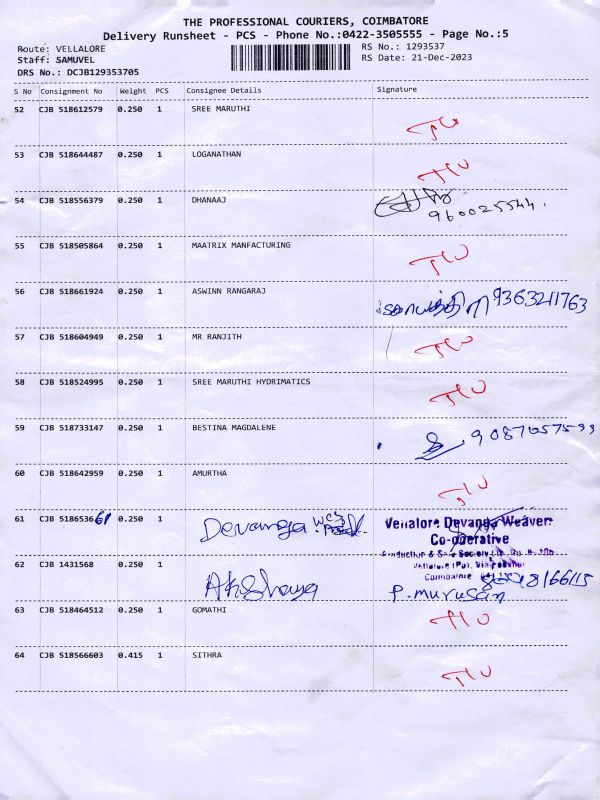 THE PROFESSIONAL COURIERS, COIMBATORE
Delivery Runsheet - PCS - Phone No.:0422-3505555 - Page No.:5
Route: VELLALORE
RS No.: 1293537
Staff: SAMUVEL
RS Date: 21-Dec-2023
DRS No.: DCJB129353705
S No Consignment No Weight PCS Consignee Details Signature
52 CJB 518612579 0.250 1 SREE MARUTHI
53 CJB 518644487 0.250 1 LOGANATHAN
54 CJB 518556379 0.250 1 DHANAAJ
960025544.
55 CJB 518505864 0.250 1 MAATRIX MANFACTURING
56 CJB 518661924 0.250 1 ASWINN RANGARAJ
9363211763
57 CJB 518604949 0.250 1 MR RANJITH
58 CJB 518524995 0.250 1 SREE MARUTHI HYDRIMATICS
59 CJB 518733147 0.250 1 BESTINA MAGDALENE
9087057599
60 CJB 518642959 0.250 1 AMURTHA
61 CJB 51865366 0.250 1 Devanga
Vellalore Devanga Weavers
Co-operative
62 CJB 1431568 0.250 1 Akshaya
Coimbatore
P. murusan
63 CJB 518464512 0.250 1 GOMATHI
64 CJB 518566603 0.415 1 SITHRA